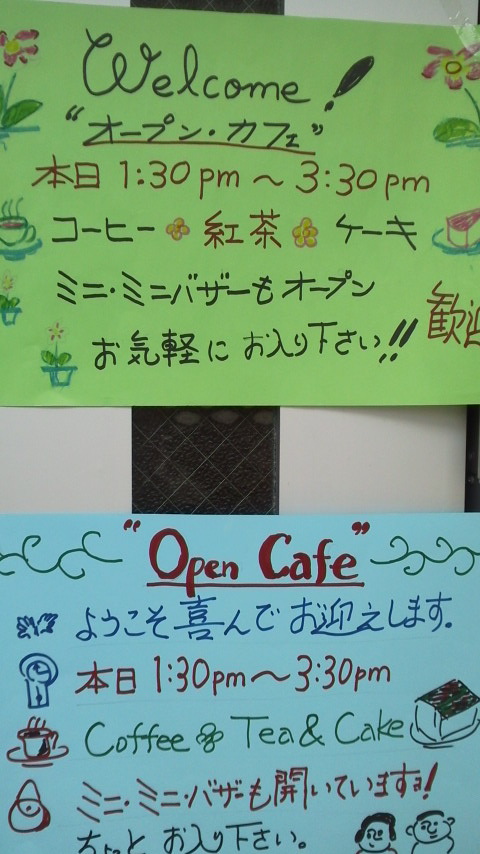 Welcome!
“オープン・カフェ”
本日 1:30pm～3:30pm
コーヒー 紅茶 ケーキ
ミニ・ミニバザーもオープン
歓迎
お気軽に お入り下さい!!
“Open Cafe”
ようこそ喜んでお迎えします。
本日 1:30pm～3:30pm
Coffee Tea & Cake
ミニ・ミニ・バザーも開いています!
ちょっと お入り下さい。